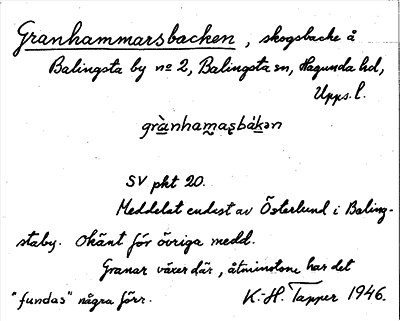 Granhammarsbacken, skogsbacke å
Balingsta by nº 2, Balingsta sn, Hagunda hd,
Upps. l.
grànhamaʂbàkən
SV pkt 20.
Meddelat endast av Österlund i Baling-
staby. Okänt för övriga medd.
Granar växer där, åtminstone har det
"fundas" några förr. K.-H. Tapper 1946.